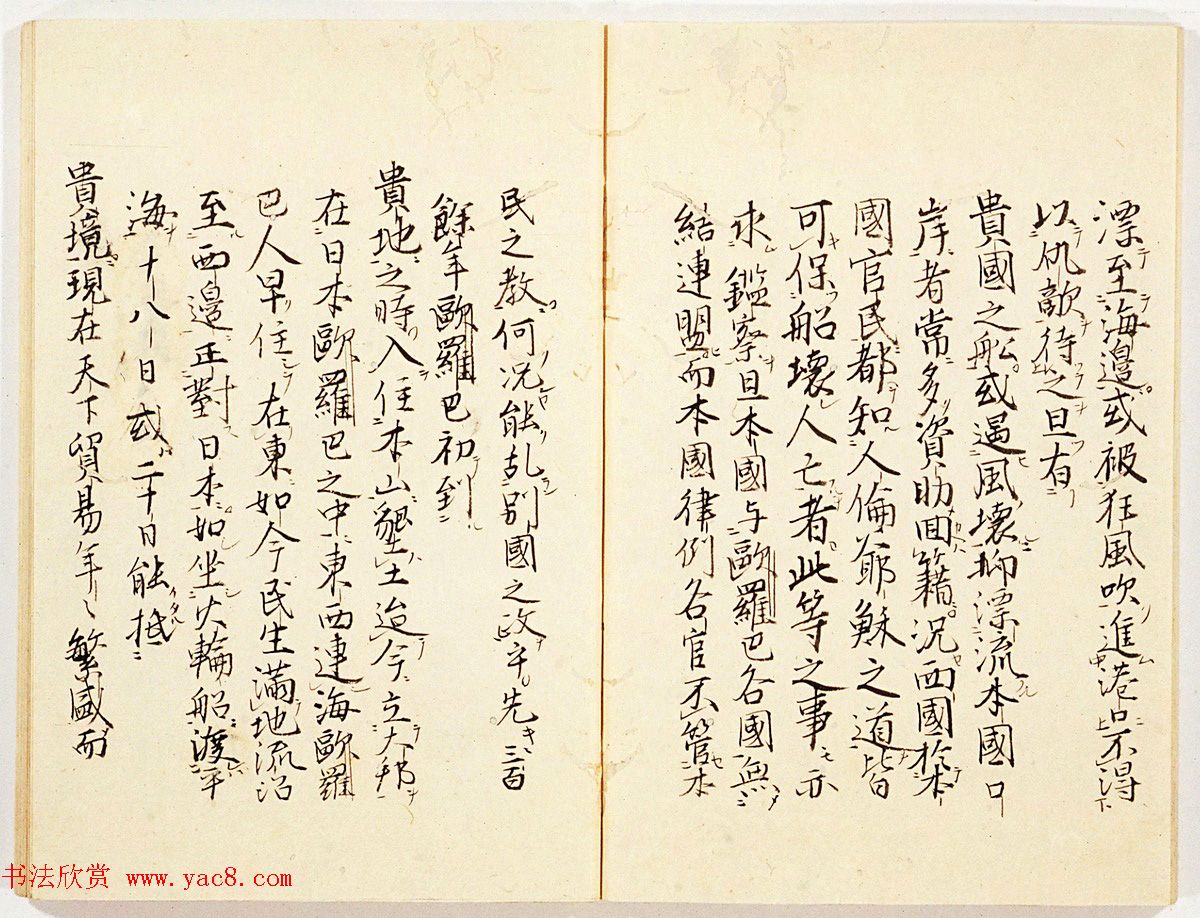 漂至海邉或被狂風吹進港口不得
以仇敵待之且有
貴國之船或遇風壞抑漂流本國口
岸者常多資助回籍況西國於本
國官民都知人倫爺穌之道皆
可保船壞人亡者此等之事亦
求鑑察且本國与歐羅巴各國無
結連盟而本國律例各官不管本
民之教何況能乱別國之政乎先三百
餘年歐羅巴初到
貴地之時入住本山墾土迨今立大邦
在日本歐羅巴之中東西連海歐羅
巴人早住在東如今民生滿地流沿
至西邉正對日本如坐火輪船渡平
海十八日或二十日能抵
貴境現在天下貿易年〻繁盛而
书法欣赏 www.yac8.com